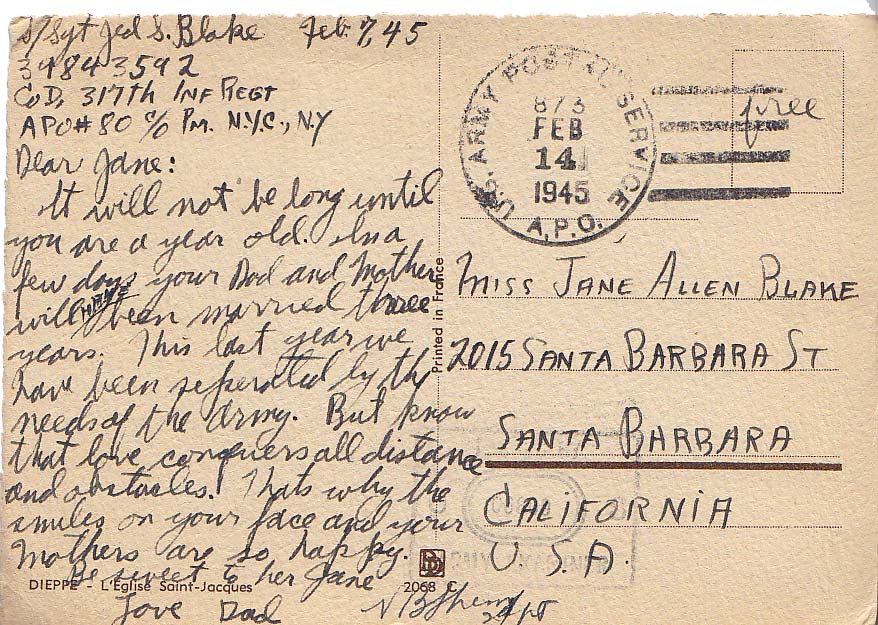 S/Sgt Jed S. Blake Feb. 7, 45
39843592
Co D, 317th Inf Regt
APO# 80 c/o Pm. N.Y.C., N.Y
Dear Jane:
It will not be long until
you are a year old. In a
few days your Dad and Mother
will have been married three
years. This last year we
have been seperated by the
needs of the army. But know
that love conquers all distance
and obstacles. Thats why the
smiles on your face and your
Mothers are so happy.
Be sweet to her Jane
Love Dad
DIEPPE - L'Eglise Saint-Jacques
2068 C
Printed in France
U.S. ARMY POSTAL SERVICE
873
FEB
14
1945
A.P.O.
free
MISS JANE ALLEN BLAKE
2015 SANTA BARBARA ST
SANTA BARBARA
CALIFORNIA
U.S.A.